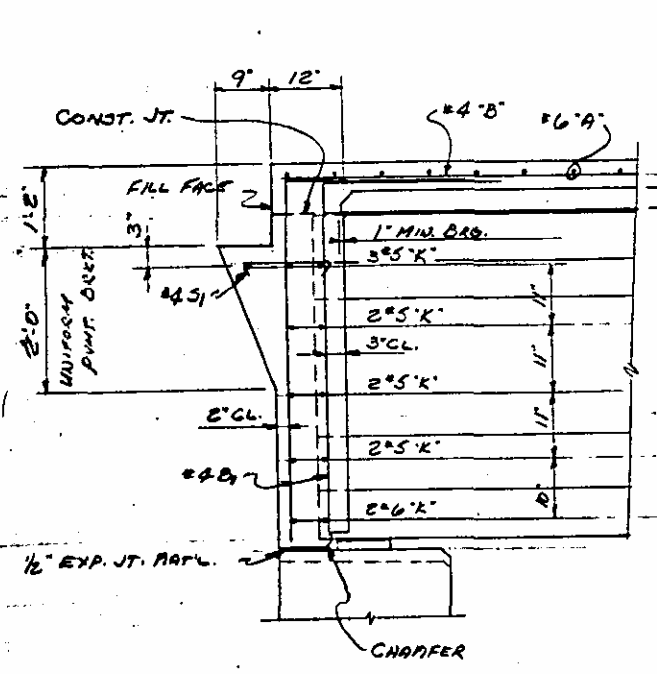 9" 12"
CONST. JT.
#4 "B"
#6 "A"
FILL FACE
1'-2"
3"
1" MIN. BRG.
3#5 "K"
#4 S1
2'-0"
UNIFORM
PVMT. BRKT.
2#5 "K"
11"
3" CL.
11"
2#5 "K"
2" CL.
11"
2#5 "K"
#4 B1
10"
2#6 "K"
1/2" EXP. JT. MAT'L.
CHAMFER